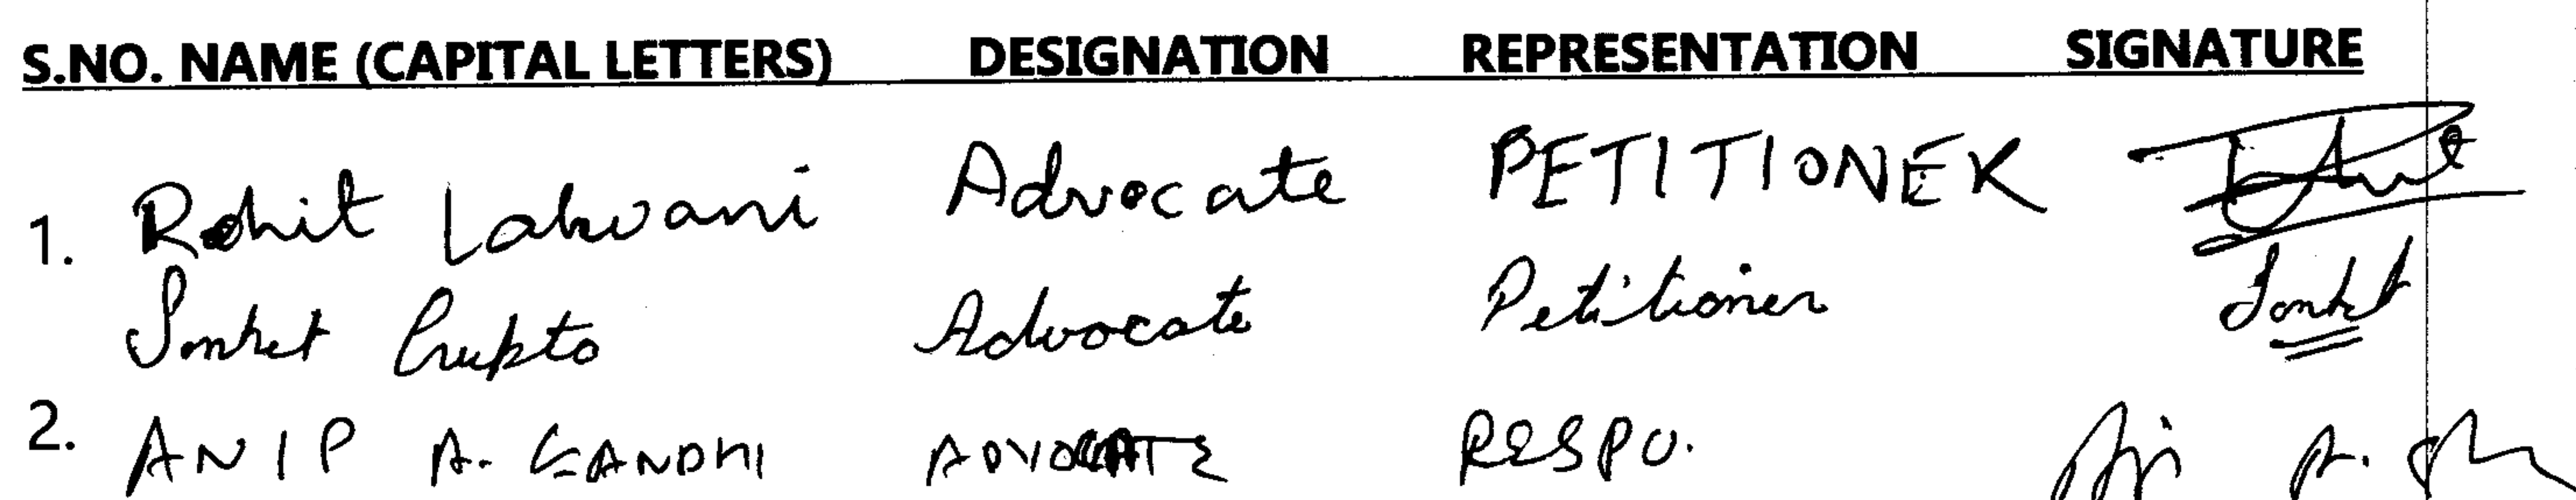 S.NO. NAME (CAPITAL LETTERS) DESIGNATION REPRESENTATION SIGNATURE
1. Rohit Lalwani Advocate PETITIONER
Sanket Gupta Advocate Petitioner Sanket
2. ANIP A. GANDHI ADVOCATE RESPO.